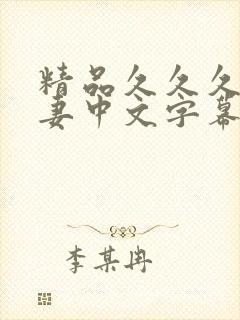 精品久久久
妻中文字幕
李某冉